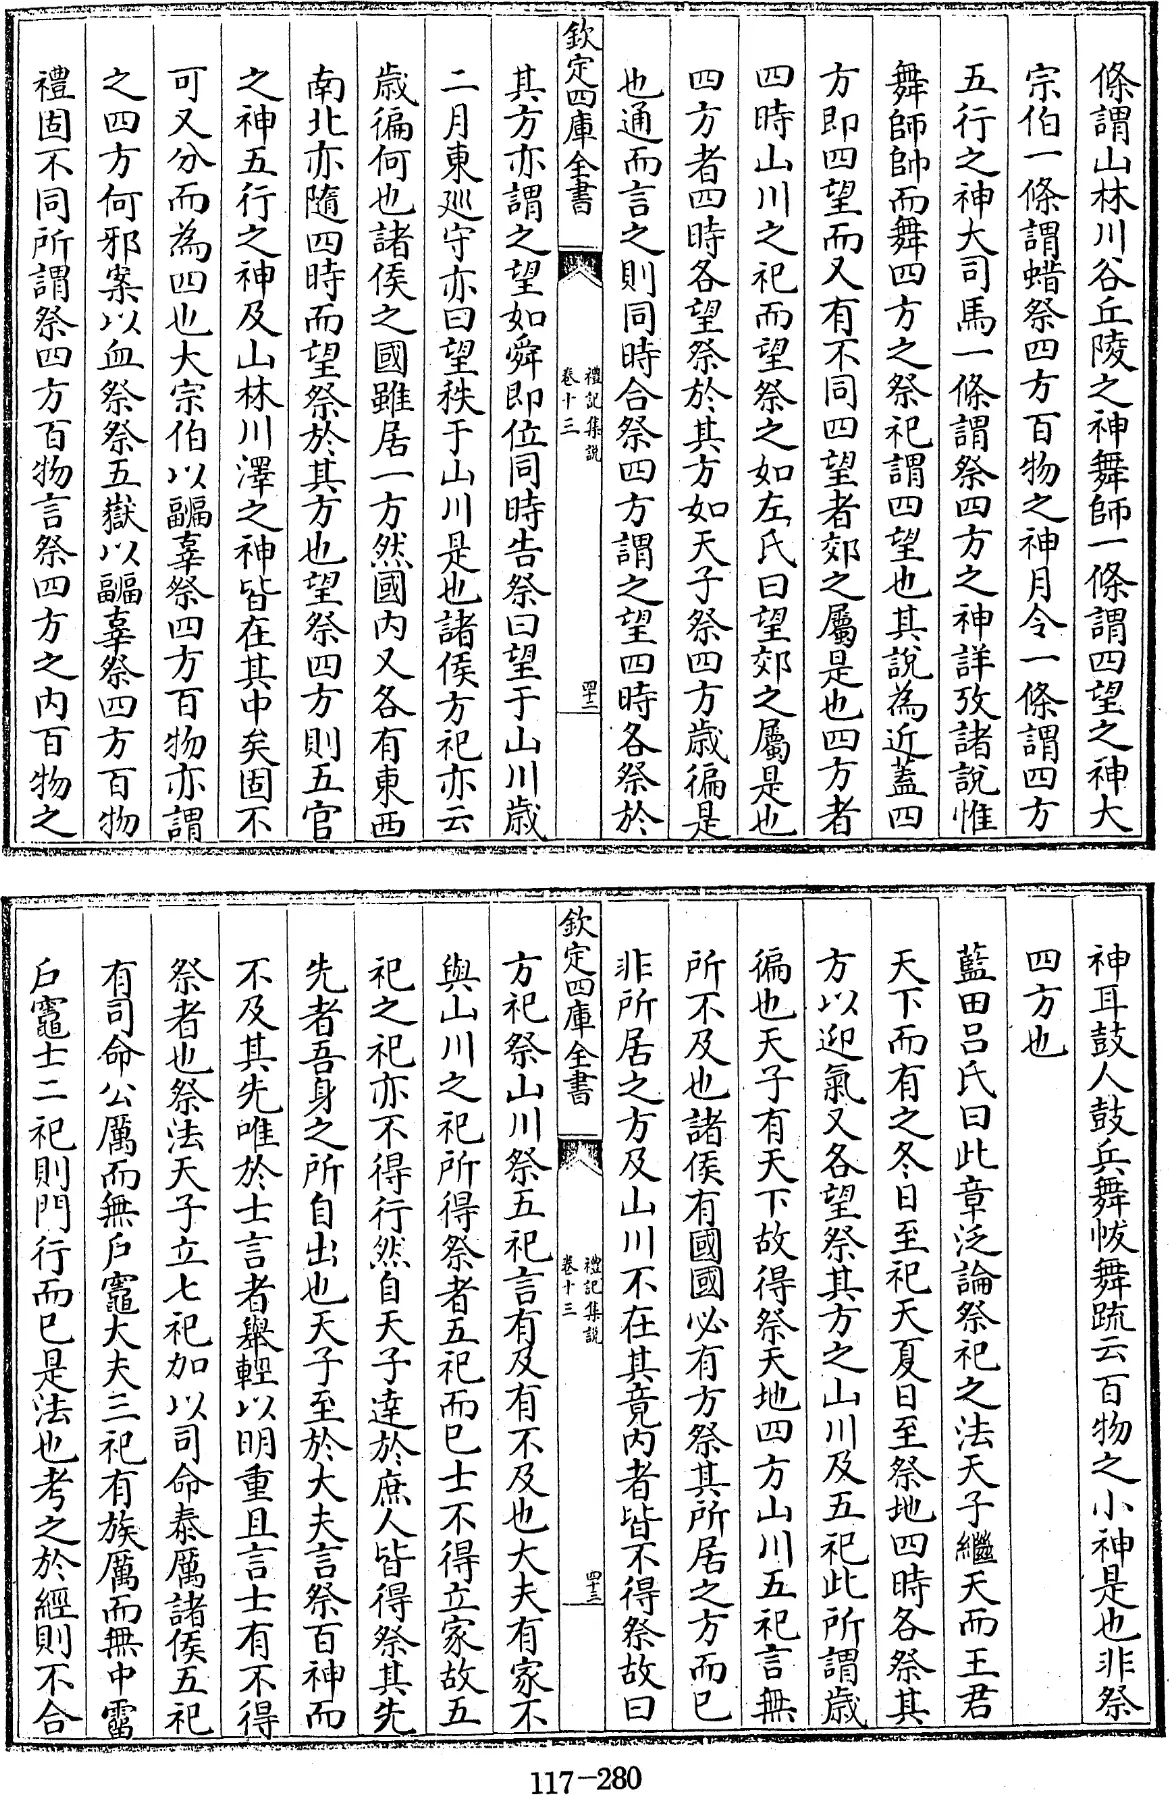 條謂山林川谷丘陵之神舞師一條謂四望之神大
宗伯一條謂蜡祭四方百物之神月令一條謂四方
五行之神大司馬一條謂祭四方之神詳攷諸說惟
舞師帥而舞四方之祭祀謂四望也其說為近蓋四
方即四望而又有不同四望者郊之屬是也四方者
四時山川之祀而望祭之如左氏曰望郊之屬是也
四方者四時各望祭於其方如天子祭四方歲徧是
也通而言之則同時合祭四方謂之望四時各祭於
欽定四庫全書
禮記集說
卷十三
四十二
其方亦謂之望如舜即位同時告祭曰望于山川歲
二月東廵守亦曰望秩于山川是也諸侯方祀亦云
歲徧何也諸侯之國雖居一方然國內又各有東西
南北亦隨四時而望祭於其方也望祭四方則五官
之神五行之神及山林川澤之神皆在其中矣固不
可又分而為四也大宗伯以疈辜祭四方百物亦謂
之四方何邪案以血祭祭五嶽以疈辜祭四方百物
禮固不同所謂祭四方百物言祭四方之內百物之
神耳鼓人鼓兵舞帗舞疏云百物之小神是也非祭
四方也
藍田呂氏曰此章泛論祭祀之法天子繼天而王君
天下而有之冬日至祀天夏日至祭地四時各祭其
方以迎氣又各望祭其方之山川及五祀此所謂歲
徧也天子有天下故得祭天地四方山川五祀言無
所不及也諸侯有國國必有方祭其所居之方而已
非所居之方及山川不在其竟內者皆不得祭故曰
欽定四庫全書
禮記集說
卷十三
四十三
方祀祭山川祭五祀言有及有不及也大夫有家不
與山川之祀所得祭者五祀而已士不得立家故五
祀之祀亦不得行然自天子達於庶人皆得祭其先
先者吾身之所自出也天子至於大夫言祭百神而
不及其先唯於士言者舉輕以明重且言士有不得
祭者也祭法天子立七祀加以司命泰厲諸侯五祀
有司命公厲而無戶竈大夫三祀有族厲而無中霤
戶竈士二祀則門行而已是法也考之於經則不合
117-280